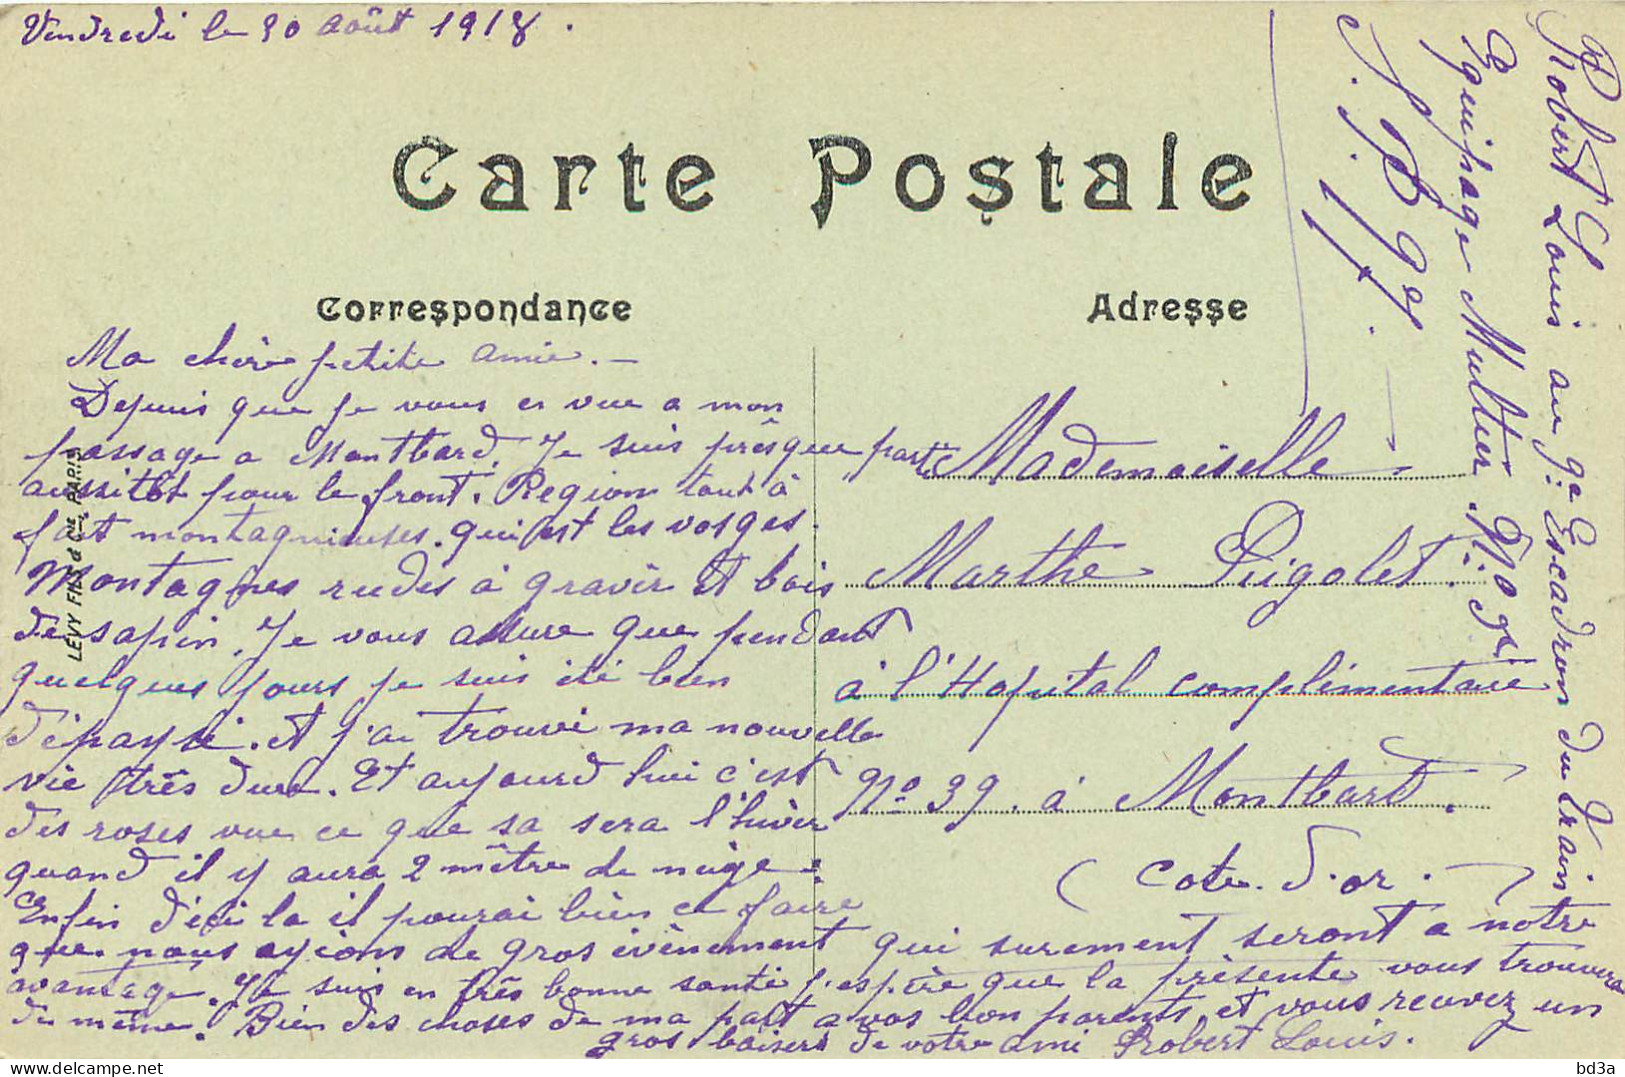 Vendredi le 30 août 1918.
Carte Postale
Correspondance
Adresse
Ma chère petite amie.-
Depuis que je vous es vue a mon
passage a Montbard, Je suis prêsque parti
aussitôt pour le front. Region tout à
fait montagnieuses. qui est les vosges.
Montagnes rudes à gravir Et bois
de sapin. Je vous assure que pendant
quelques jours je suis été bien
dépaysé. et j'ai trouvé ma nouvelle
vie três dure. Et aujourd hui c'est
des roses vue ce que sa sera l'hiver
quand il y aura 2 mêtre de neige.
Enfin d'ici la il pourai bien ce faire
que nous ayions de gros évènement qui surement seront a notre
avantage. Je suis en três bonne santé j'espère que la présente vous trouvera
de même. Bien des choses de ma part a vos bon parents, et vous recevez un
gros baisers de votre ami Robert Louis.
Mademoiselle
Marthe Rigolet.
à l'Hopital complimentaire
No 39. à Montbard.
(Cote. d'or.)
Robert Louis au 9e Escadron du train
Equipage Muttier. No 9e
S. P. 99
LEVY FILS & Cie, PARIS
bd3a